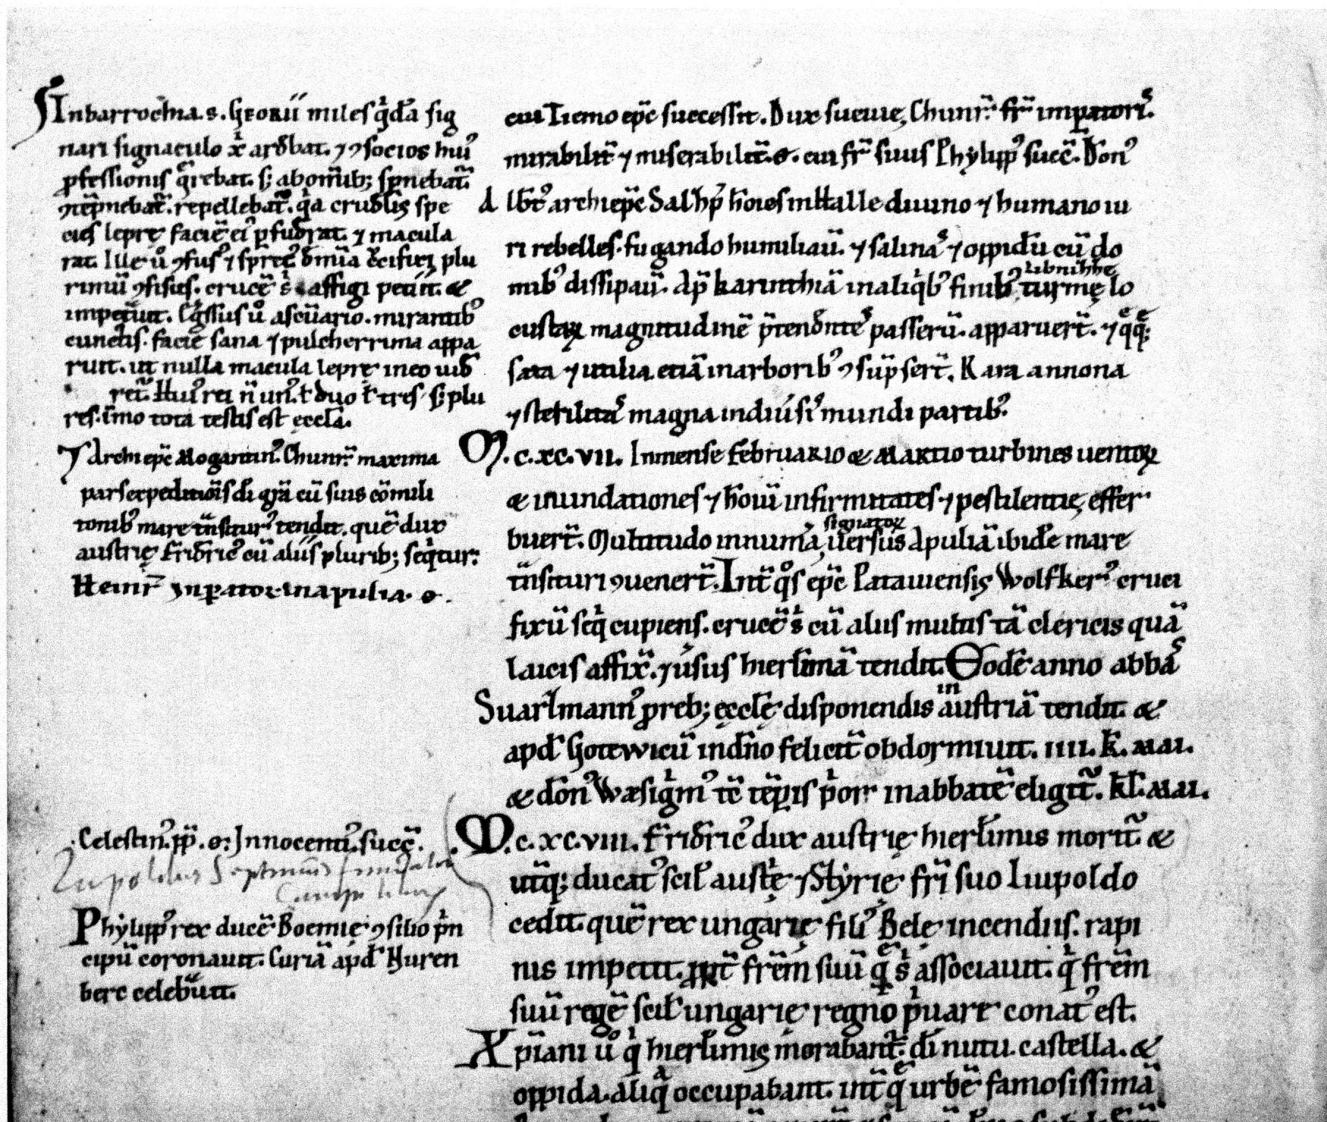 In barrochia. S. Georii miles q̇da̅ sig
nari signaculo x̅ ardebat. ⁊ ꝯsocios hui᷒
ꝓfessionis q̇rebat. s; ab om̅ib; sp̅nebat᷑
repellebat᷑. q̇a crudelis spe
cies leprę facie̅ ei᷒ ꝑfuderat. ⁊ macula
rat. Ille u̅ ꝯfus᷒ ⁊ spret᷒
rimu̅ ꝯfisus. cruce̅ ṡ affigi petiit. &
impet̅uit. mirantib᷒
cunctis. facie̅ sana ⁊ pulcherrima appa
ruit. ut nulla macula leprę in eo uid̅
ret᷑. Hui᷒ rei n̅ un᷒. ł duo ł tres. s; plu
res. immo tota testis est eccl̅a.
⁊ Archiep̅c Mogontin᷒. Chunr̅ maxima
pars expeditio̅is di̅ gr̅a cu̅ suis co̅mili
tonib᷒ mare tr̅nsitur᷒ tendit. que̅ dux
austrię Frideric᷒ cu̅ aliis plurib; seq̇tur.
Heinr̅ inꝑator in apulia. o.
Celestin᷒. pp̅. o. Innocenti᷒. succ̅.
Lupoldus Septimus
Campililius
Phylipp᷒ rex duce̅ Boemię ꝯsilio p̅n
cipu̅ coronauit. Curia̅ apd̅ Nuren
berc celeb̅uit.
cui Tiemo ep̅c successit. Dux sueuię, Chunr̅. fr̅ imꝑatoris.
mirabilit᷑ ⁊ miserabilit᷑. o. cui fr̅ suus Phylipp᷒ succ̅. Don᷒
Albt᷒ archiep̅c Salzp̅ ho̅ies in Halle diuino ⁊ humano iu
ri rebelles. fugando humiliau̅. ⁊ salinas ⁊ oppidu̅ cu̅ do
mib᷒ dissipau̅. Ap̅ karinthia̅ in aliq̇b᷒ finib᷒ turmę lo
custaꝝ magnitudine̅ p̅tendente᷒ passeru̅. apparuer̅t. ⁊ q̅q̅;
sata ⁊ utilia etia̅ in arborib᷒ ꝯsu̅pser̅t. Kara annona
⁊ sterilitas magna in diu̅sis mundi partib᷒.
M.c.xc.vii. In mense februario & Martio turbines uentoꝝ
& inundationes ⁊ ho̅iu̅ infirmitates ⁊ pestilentię effer
buer̅t. Multitudo innum̅a signatoꝝ uersus Apulia̅ ibide̅ mare
tr̅nsituri ꝯuener̅t. Int̅ q̊s ep̅c Patauiensis Wolfker᷒ cruci
fixu̅ seq̇ cupiens. cruce̅ ṡ cu̅ aliis multis ta̅ clericis qua̅
laicis affix̅. ⁊ u̅sus hierl̅ima̅ tendit. Eode̅ anno abbas
Suarlmann᷒ ꝓ reb; ęccl̅ę disponendis in austria̅ tendit. &
apd̅ Gotewicu̅ in dn̅o felicit᷑ obdormiuit. iiii. k̅. mai.
& don᷒ Wæsigri̅m᷒ te̅ te̅ꝑis p̅or in abbate̅ eligit᷑. kl̅. mai.
M.c.xc.viii. Frideric᷒ dux austrię hierl̅imis morit᷑ &
ut̅q; ducat᷒ scil̅ aust̅ę ⁊ Styrię fr̅i suo Liupoldo
cedit. que̅ rex ungarię fili᷒ Belę incendiis. rapi
nis impetit. fr̅em suu̅ ṡ associauit. q̇ fr̅em
suu̅ rege̅ scil̅ ungarię regno p̅uare conat᷒ est.
Xp̅iani u̅ q̇ hierl̅imis morabant᷑. di̅ nutu. castella. &
oppida aliq̅ occupabant. int̅ q̅ urbe̅ famosissima̅